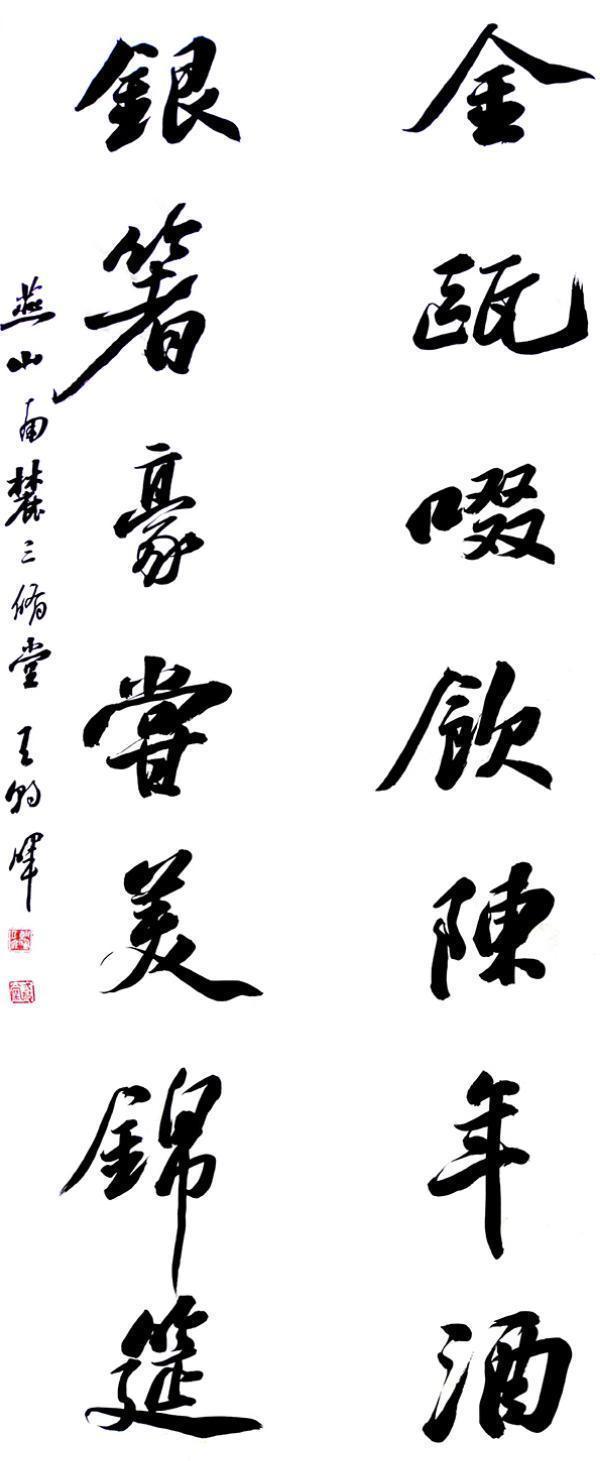 金甌啜飲陳年酒
銀箸豪嘗美錦筵
燕山南麓三脩堂 王